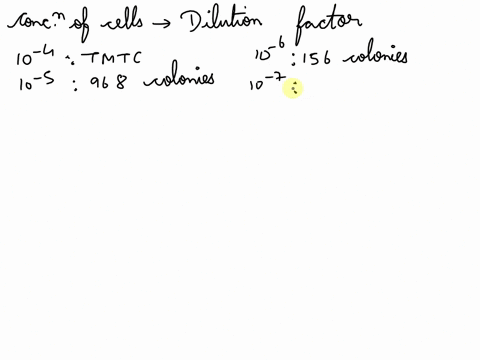 conc.ⁿ of cells → Dilution factor
10⁻⁴ : TMTC 10⁻⁶ : 156 colonies
10⁻⁵ : 968 colonies 10⁻⁷ :